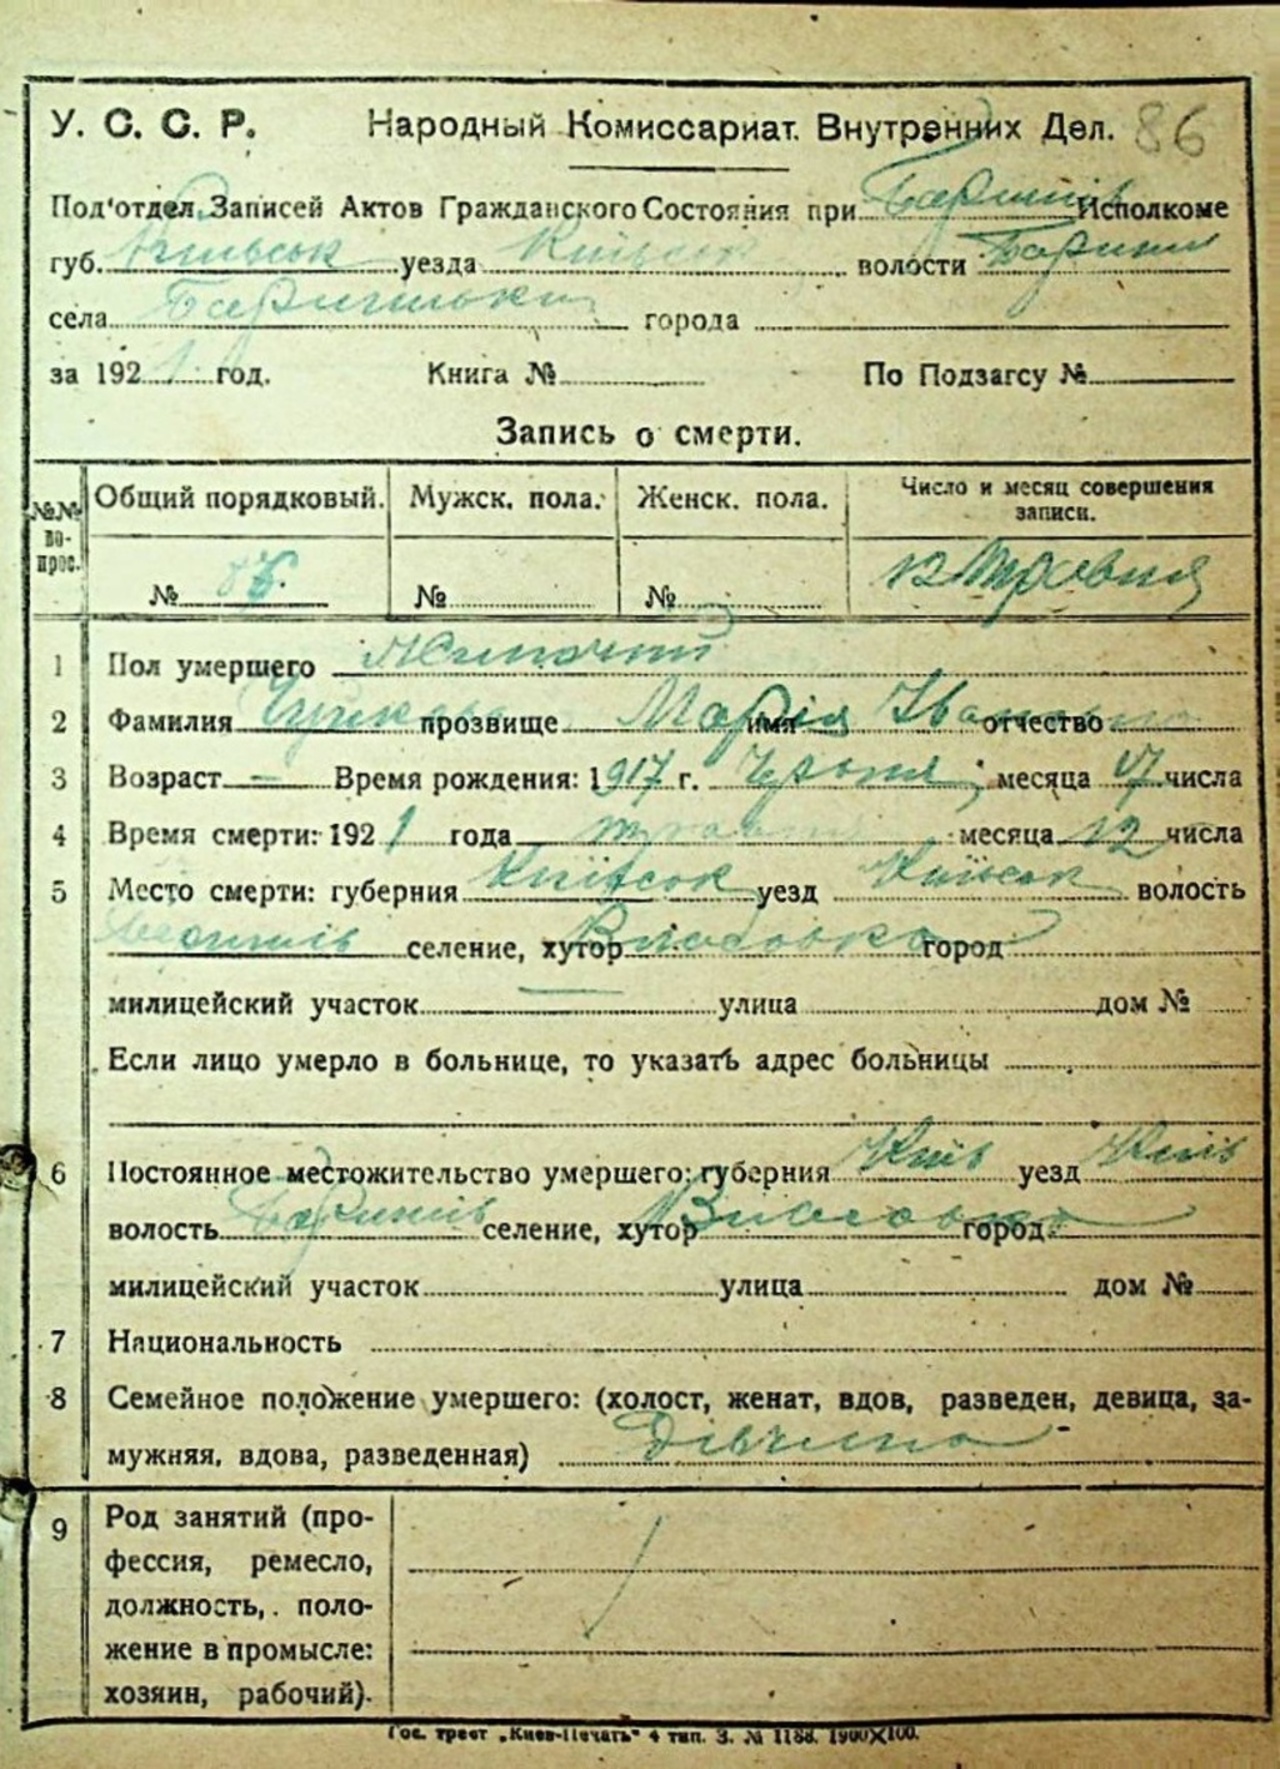 У. С. С. Р. Народный Комиссариат. Внутренних Дел. 86
Под'отдел Записей Актов Гражданского Состояния при Баришів Исполкоме
губ. уезда Київськ волости Бариш
села города
за 192 1 год. Книга № По Подзагсу №
Запись о смерти.
№№ вопрос. Общий порядковый. Мужск. пола. Женск. пола. Число и месяц совершения записи.
№ 86. № № 12 травня
1 Пол умершего Жиночий
2 Фамилия прозвище Марія имя Іванівна отчество
3 Возраст — Время рождения: 1917 г. месяца 17 числа
4 Время смерти: 192 1 года травня месяца 12 числа
5 Место смерти: губерния Київськ уезд Київськ волость
Баришів селение, хутор Власовка город
милицейский участок — улица дом №
Если лицо умерло в больнице, то указать адрес больницы
6 Постоянное местожительство умершего: губерния Київ уезд Київ
волость Баришів селение, хутор Власовка город
милицейский участок улица дом №
7 Национальность
8 Семейное положение умершего: (холост, женат, вдов, разведен, девица, за-
мужняя, вдова, разведенная) Дівчина
9 Род занятий (про-
фессия, ремесло,
должность, поло-
жение в промысле:
хозяин, рабочий).
Гос. трест „Киев-Печать" 4 тип. З. № 1188. 1900X100.